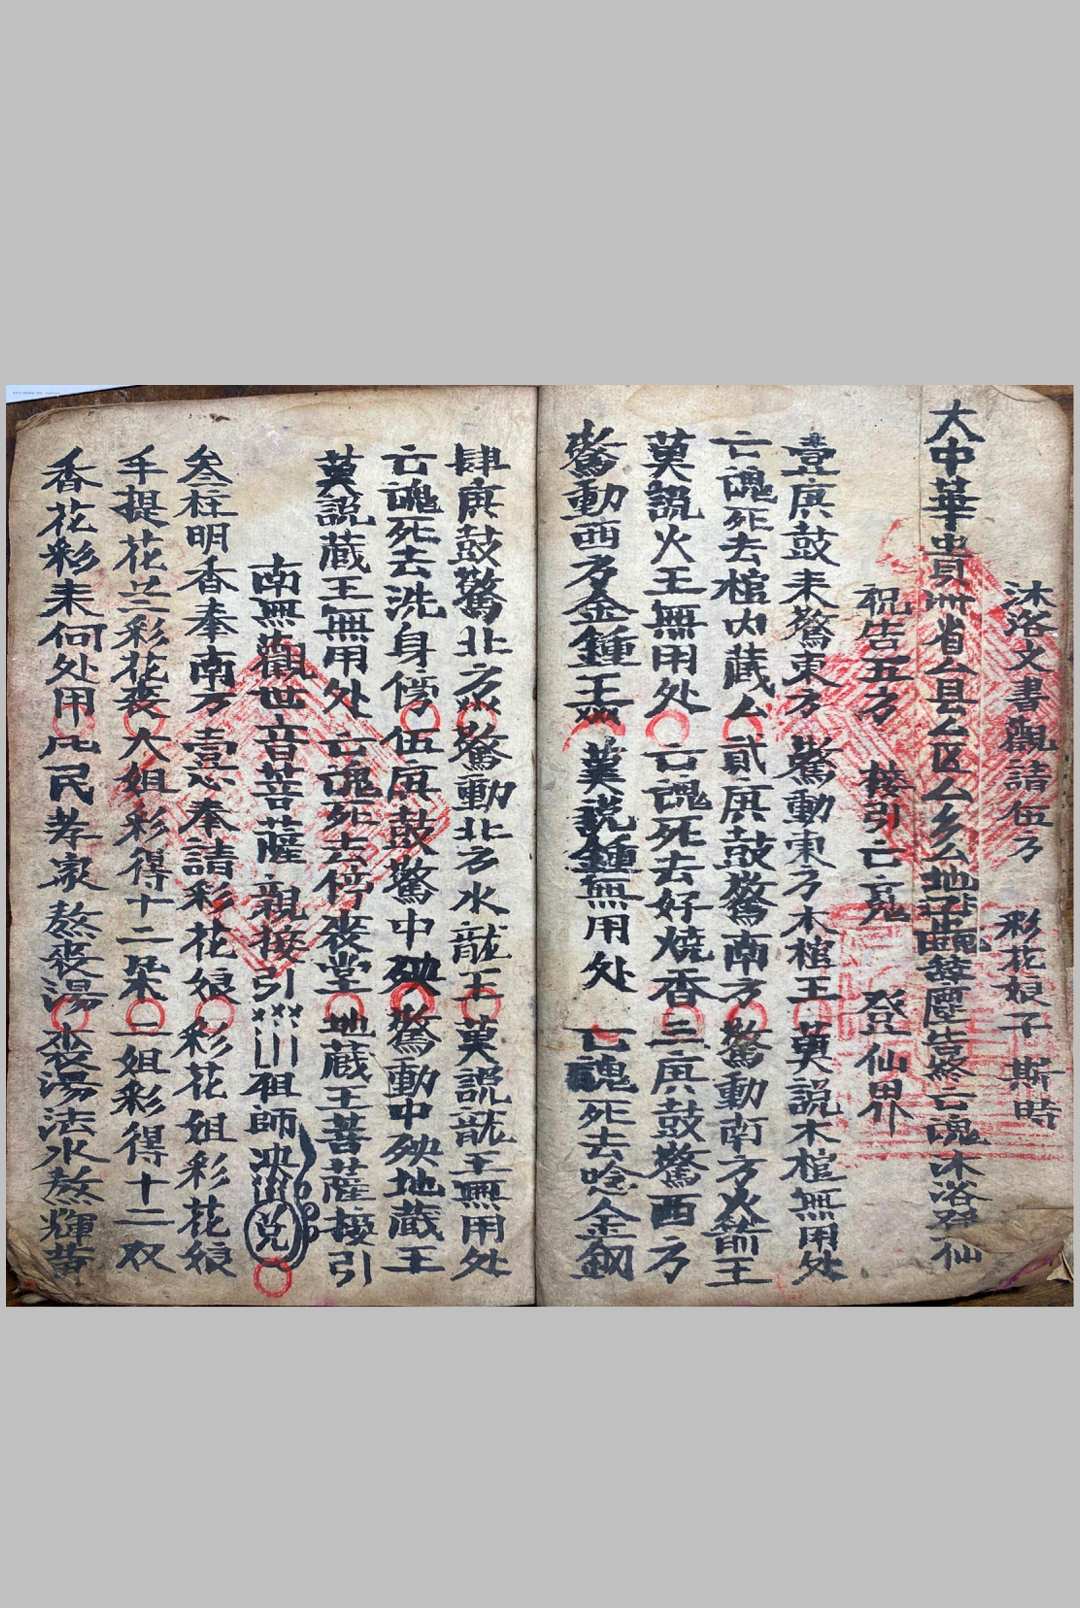 沐落文書觀請伍方 彩花娘子 斯時
大中華貴州省厶县厶区厶乡厶地 亡魂沐浴登仙
祝告五方 接引亡魂 登仙界
壹庚鼓来驚東方 驚動東方木棺王 莫説木棺無用处
亡魂死去棺内藏厶 貳庚鼓驚南方 驚動南方火 王
莫説火王無用处 亡魂死去好燒香 三庚鼓驚西方
驚動西方金鍾王 莫説鍾無用处 亡魂死去唸金剛
肆庚鼓驚北方 驚動北方水龍王 莫説龍王無用处
亡魂死去洗身傍 伍庚鼓驚中殃 驚動中殃地蔵王
莫説蔵王無用处 亡魂死去停丧堂 地蔵王菩薩接引
南無觀世音菩薩 親接引 祖師
叁柱明香奉南方 壹心奉請彩花娘 彩花姐彩花娘
手提花 彩花丧 大姐彩得十二朵 二姐彩得十二双
香花彩来何处用 民孝家 熬丧湯 丧湯法水熬輝黄